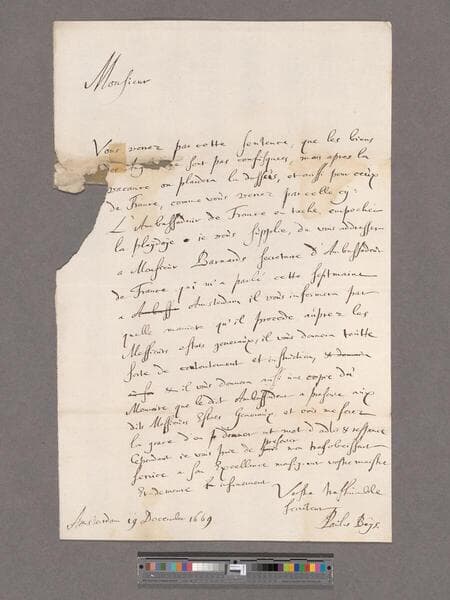 Monsieur
Vous verez par cette sentence, que les biens
sont pas confisques, mais apres la
vacance on plaidera la dessus, et aussi pour ceux
de France, comme vous verez par celle cy
L'Ambassadeur de France en tache, empecher
la playdoye je vous supplie, de vous addresser
a Monsieur Barnards Secretaire d'Ambassadeur
de France qui m'a parlé cette septmaine
a Ambass Amsterdam il vous informera par
quelle maniere qu'il procede aupres les
Messieurs estats generaux, il vous donnera toutte
sorte de contentement et instruction, &
& il vous donnera aussi une copye du
Memoire que le dit Ambassadeur a presenté aux
dits Messieurs Estats Generaux et vous me ferez
la grace d'on donner ut mot d'advis &
Cependant je vous prie de presenter mon treshobeissant
service a son Excellence monseigneur vostre maistre
Et demeure infiniement
Vostre treshumble
serviteur
Amsterdam 19 December 1669